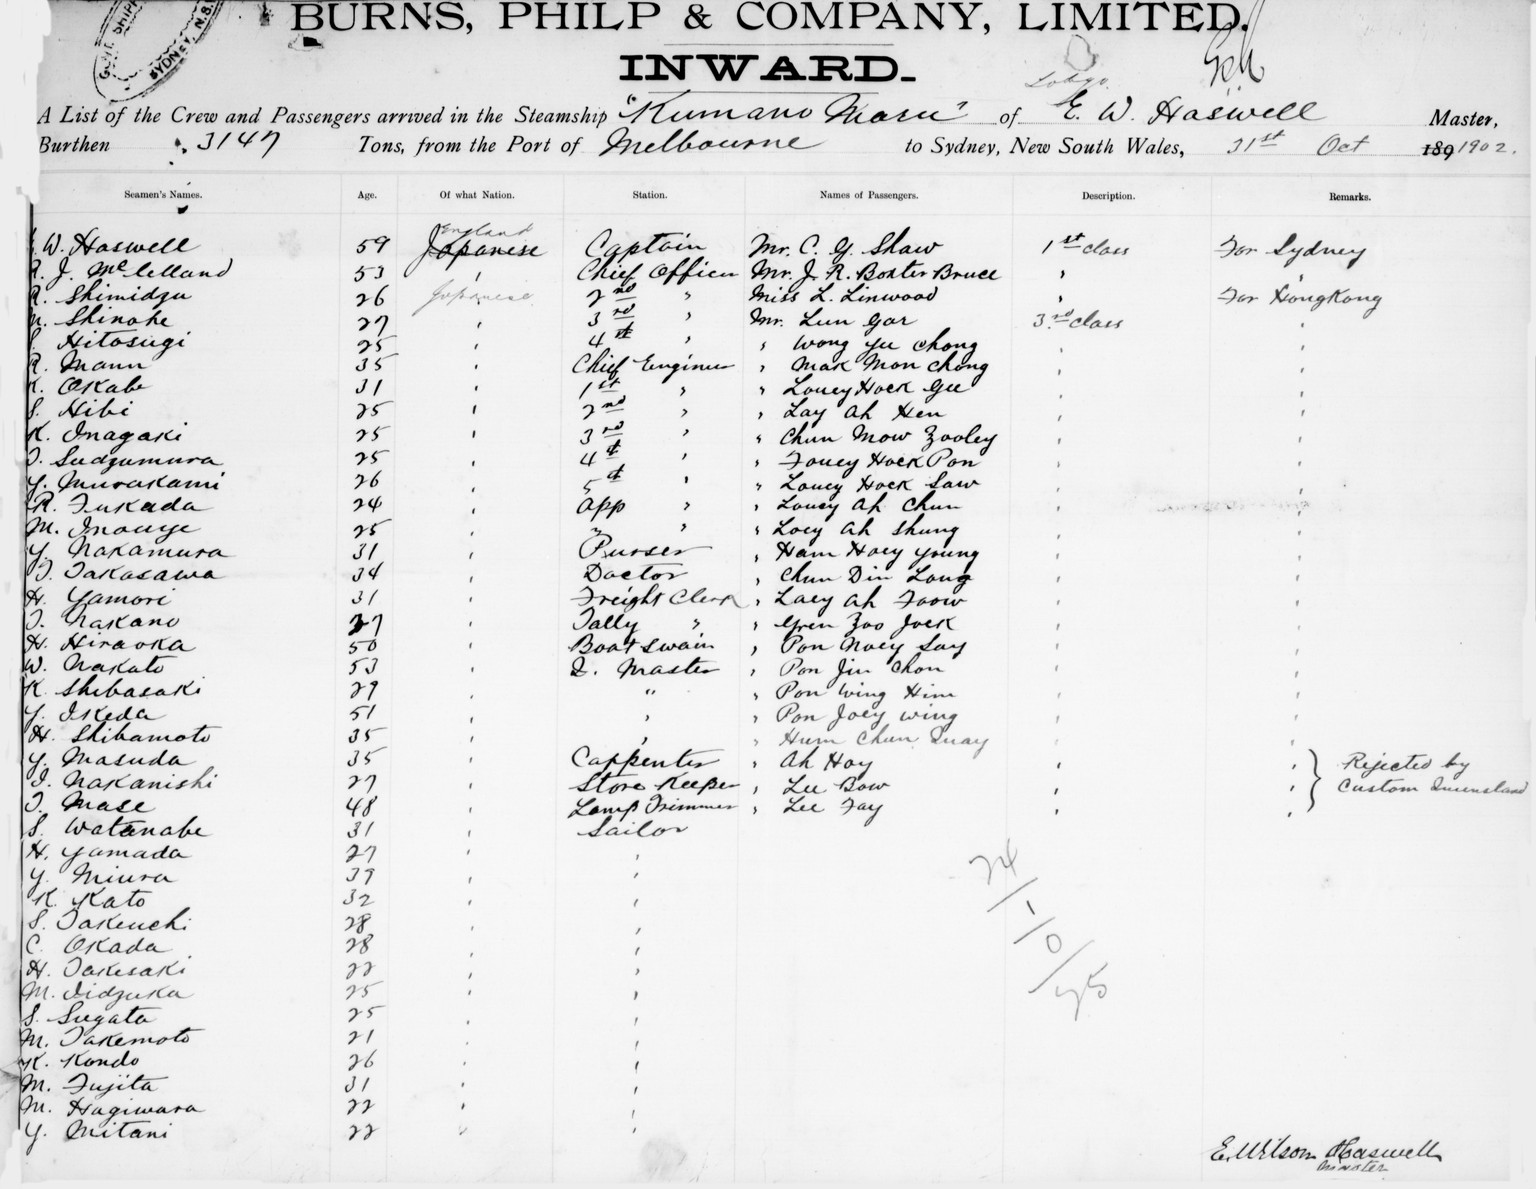 BURNS, PHILP & COMPANY, LIMITED.
INWARD.
A List of the Crew and Passengers arrived in the Steamship "Kumano Maru" of E. W. Haswell Master,
Burthen 3147 Tons, from the Port of Melbourne to Sydney, New South Wales, 31st Oct 189 1902.
Seamen's Names. Age. Of what Nation. Station. Names of Passengers. Description. Remarks.
England
W. Haswell 59 Japanese Captain Mr. C. G. Shaw 1st class For Sydney
R. J. McLelland 53 " Chief Officer Mr. J. R. Baxter Bruce "
R. Shimidzu 26 Japanese 2nd " Miss L. Linwood " For HongKong
N. Shinohe 27 " 3rd " Mr. Lun Gar 3rd class "
S. Hitosugi 25 " 4th " " Wong Yee Chong " "
R. Mann 35 " Chief Engineer " Mak Mon Chong " "
K. Okabe 31 " 1st " " Louey Hock Gee " "
S. Hibi 25 " 2nd " " Lay Ah Hen " "
K. Inagaki 25 " 3rd " " Chun Mow Zooley " "
T. Sudzumura 25 " 4th " " Fouey Hock Pon " "
Y. Murakami 26 " 5th " " Louey Hock Saw " "
R. Fukada 24 " App " " Louey Ah Chun " "
M. Inouye 25 " " " " Loey Ah Shung " "
Y. Nakamura 31 " Purser " Ham Hoey Young " "
T. Takasawa 34 " Doctor " Chun Din Long " "
H. Yamori 31 " Freight Clerk " Laey Ah Foow " "
T. Nakano 27 " Tally " " Yren Zoo Jock " "
H. Hiraoka 50 " Boatswain " Pon Noey Say " "
W. Nakato 53 " Q. Master " Pon Jin Chon " "
K. Shibasaki 29 " " " Pon Wing Him " "
Y. Ikeda 51 " " " Pon Joey Wing " "
H. Shibamoto 35 " " " Hum Chun Quay " "
Y. Masuda 35 " Cappenter " Ah Hoy " " Rejected by
I. Nakanishi 27 " Store Keeper " Lee Bow " " Custom Queensland
T. Mase 48 " Lamp Trimmer " Lee Fay " "
S. Watanabe 31 " Sailor
H. Yamada 27 " "
Y. Miura 39 " "
K. Kato 32 " "
S. Takeuchi 28 " "
C. Okada 28 " "
H. Takesaki 22 " "
M. Iidzuka 25 " "
S. Sugata 25 " "
M. Takemoto 21 " "
K. Kondo 26 " "
M. Fujita 31 " "
M. Hagiwara 22 " "
Y. Mitani 22 " "
E. Wilson Haswell
Master